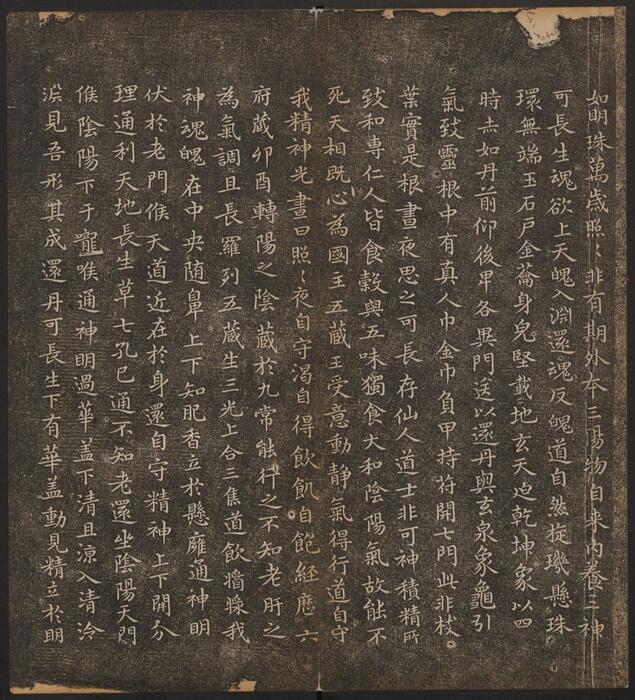 如明珠萬歲照〻非有期外本三陽物自来内養三神
可長生魂欲上天魄入淵還魂反魄道自然㨔璣懸珠
環無端玉石戶金籥身皃堅載地玄天迫乾坤象以四
時赤如丹前仰後卑各異門送以還丹與玄泉象龜引
氣致靈根中有真人巾金巾負甲持苻開七門此非枝
葉實是根晝夜思之可長存仙人道士非可神積精所
致和專仁人皆食穀與五味獨食大和陰陽氣故能不
死天相既心為國主五藏王受意動靜氣得行道自守
我精神光晝日照〻夜自守渴自得飲飢自飽經歷六
府藏卯酉轉陽之陰藏於九常能行之不知老肝之
為氣調且長羅列五藏生三光上合三焦道飲醬漿我
神魂魄在中央随鼻上下知肥香立於懸廱通神明
伏於老門候天道近在於身還自守精神上下開分
理通利天地長生草七孔已通不知老還坐陰陽天門
候陰陽下于嚨喉通神明過華盖下清且涼入清泠
淵見吾形其成還丹可長生下有華盖動見精立於明